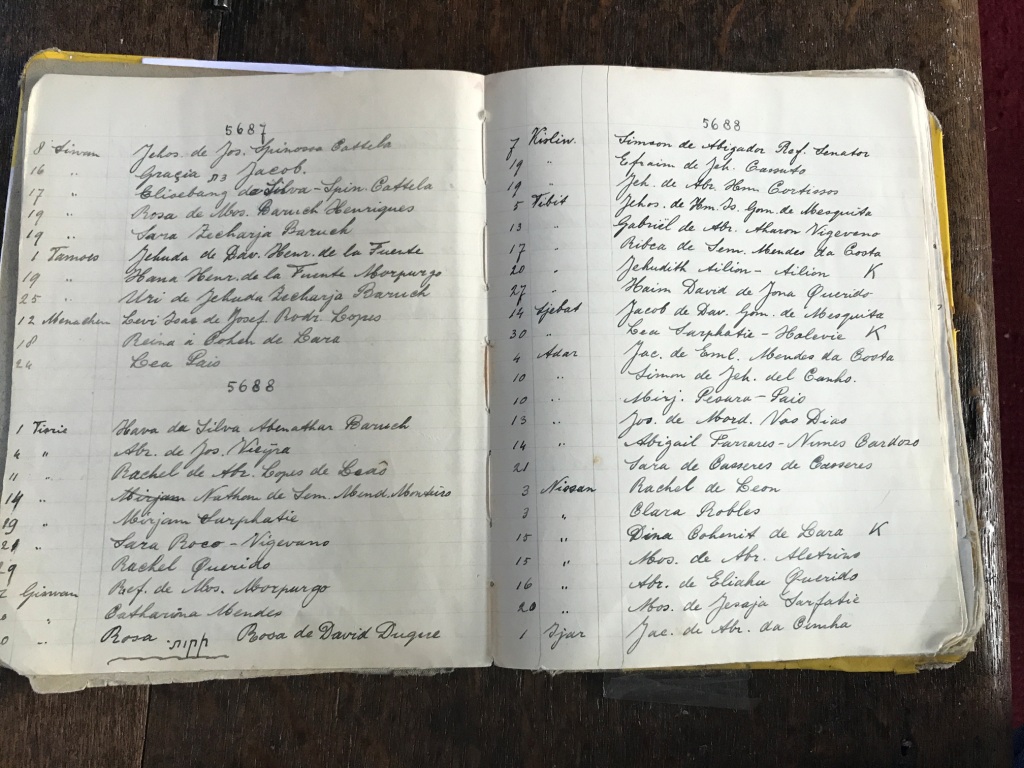 5687
8 Sivan Jehos. de Jos. Spinossa Cattela
16 " Grazia בת Jacob.
17 " Elisebang da Silva-Spin. Cattela
19 " Rosa de Mos. Baruch Henriques
19 " Sara Zecharja Baruch
1 Tamoes Jehuda de Dav. Henr. de la Fuente
19 " Hana Henr. de la Fuente Morpurgo
25 " Uri de Jehuda Zecharja Baruch
12 Menachem Levi Isac de Josef Rodr. Lopes
18 Reina a Cohen de Lara
24 Lea Pais
5688
1 Tisrie Hava da Silva Abenathar Baruch
4 " Abr. de Jos. Vieÿra
11 " Rachel de Abr. Lopes de Leaõ
14 " Mirjam Nathan de Sem. Mend. Monteiro
19 " Mirjam Sarphatie
21 " Sara Roco-Vigevano
29 Rachel Querido
Gisvan Ref. de Mos. Morpurgo
" Catharina Mendes
" Rosa Rosa de David Duque
5688
7 Kislin. Simson de Abigador Ref. Senator
19 " Efraim de Jeh. Cassuto
19 " Jeh. de Abr. Hm Cortissos
5 Tibit Jehos. de Hm. Is. Gom. de Mesquita
13 " Gabriël de Abr. Aharon Vigevano
17 " Ribca de Sem. Mendes da Costa
20 " Jehudith Ailion-Ailion K
27 " Haim David de Jona Querido
14 Sjebat Jacob de Dav. Gom. de Mesquita
30 " Lea Sarphatie-Halevie K
4 Adar Jac. de Eml. Mendes da Costa
10 " Simon de Jeh. del Canho.
10 " Mirj. Pesara-Pais
13 " Jos. de Mord. Vas Dias
14 " Abigail Farrares-Nunes Cardozo
21 " Sara de Casseres de Casseres
3 Nissan Rachel de Leon
3 " Clara Robles
10 " Dina Cohenit de Lara K
15 " Mos. de Abr. Aletrino
16 " Abr. de Eliahu Querido
20 " Mos. de Jesaja Sarfatie
1 Ijar Jac. de Abr. da Cunha